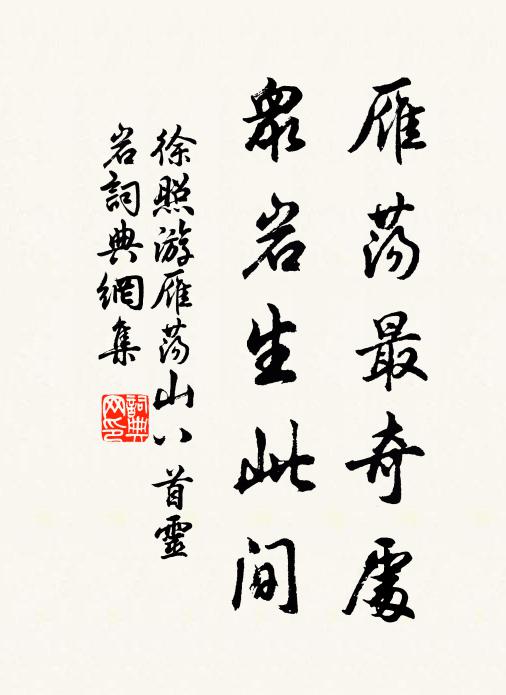 雁荡最奇處
衆岩生此间
徐照游雁荡山八首靈
岩詞典網集
詞典网印